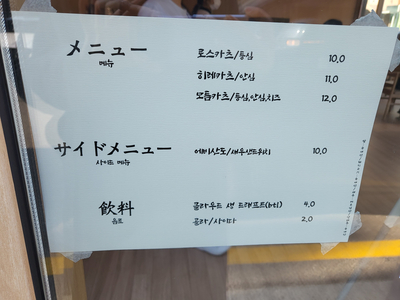 メニュー
메뉴
로스카츠/등심 10,0
히레카츠/안심 11,0
모듬카츠/등심,안심,치즈 12,0
サイドメニュー
사이드 메뉴
에비산도/새우샌드위치 10,0
飲料
음료
클라우드 생 드래프트(btl) 4,0
콜라/사이다 2,0